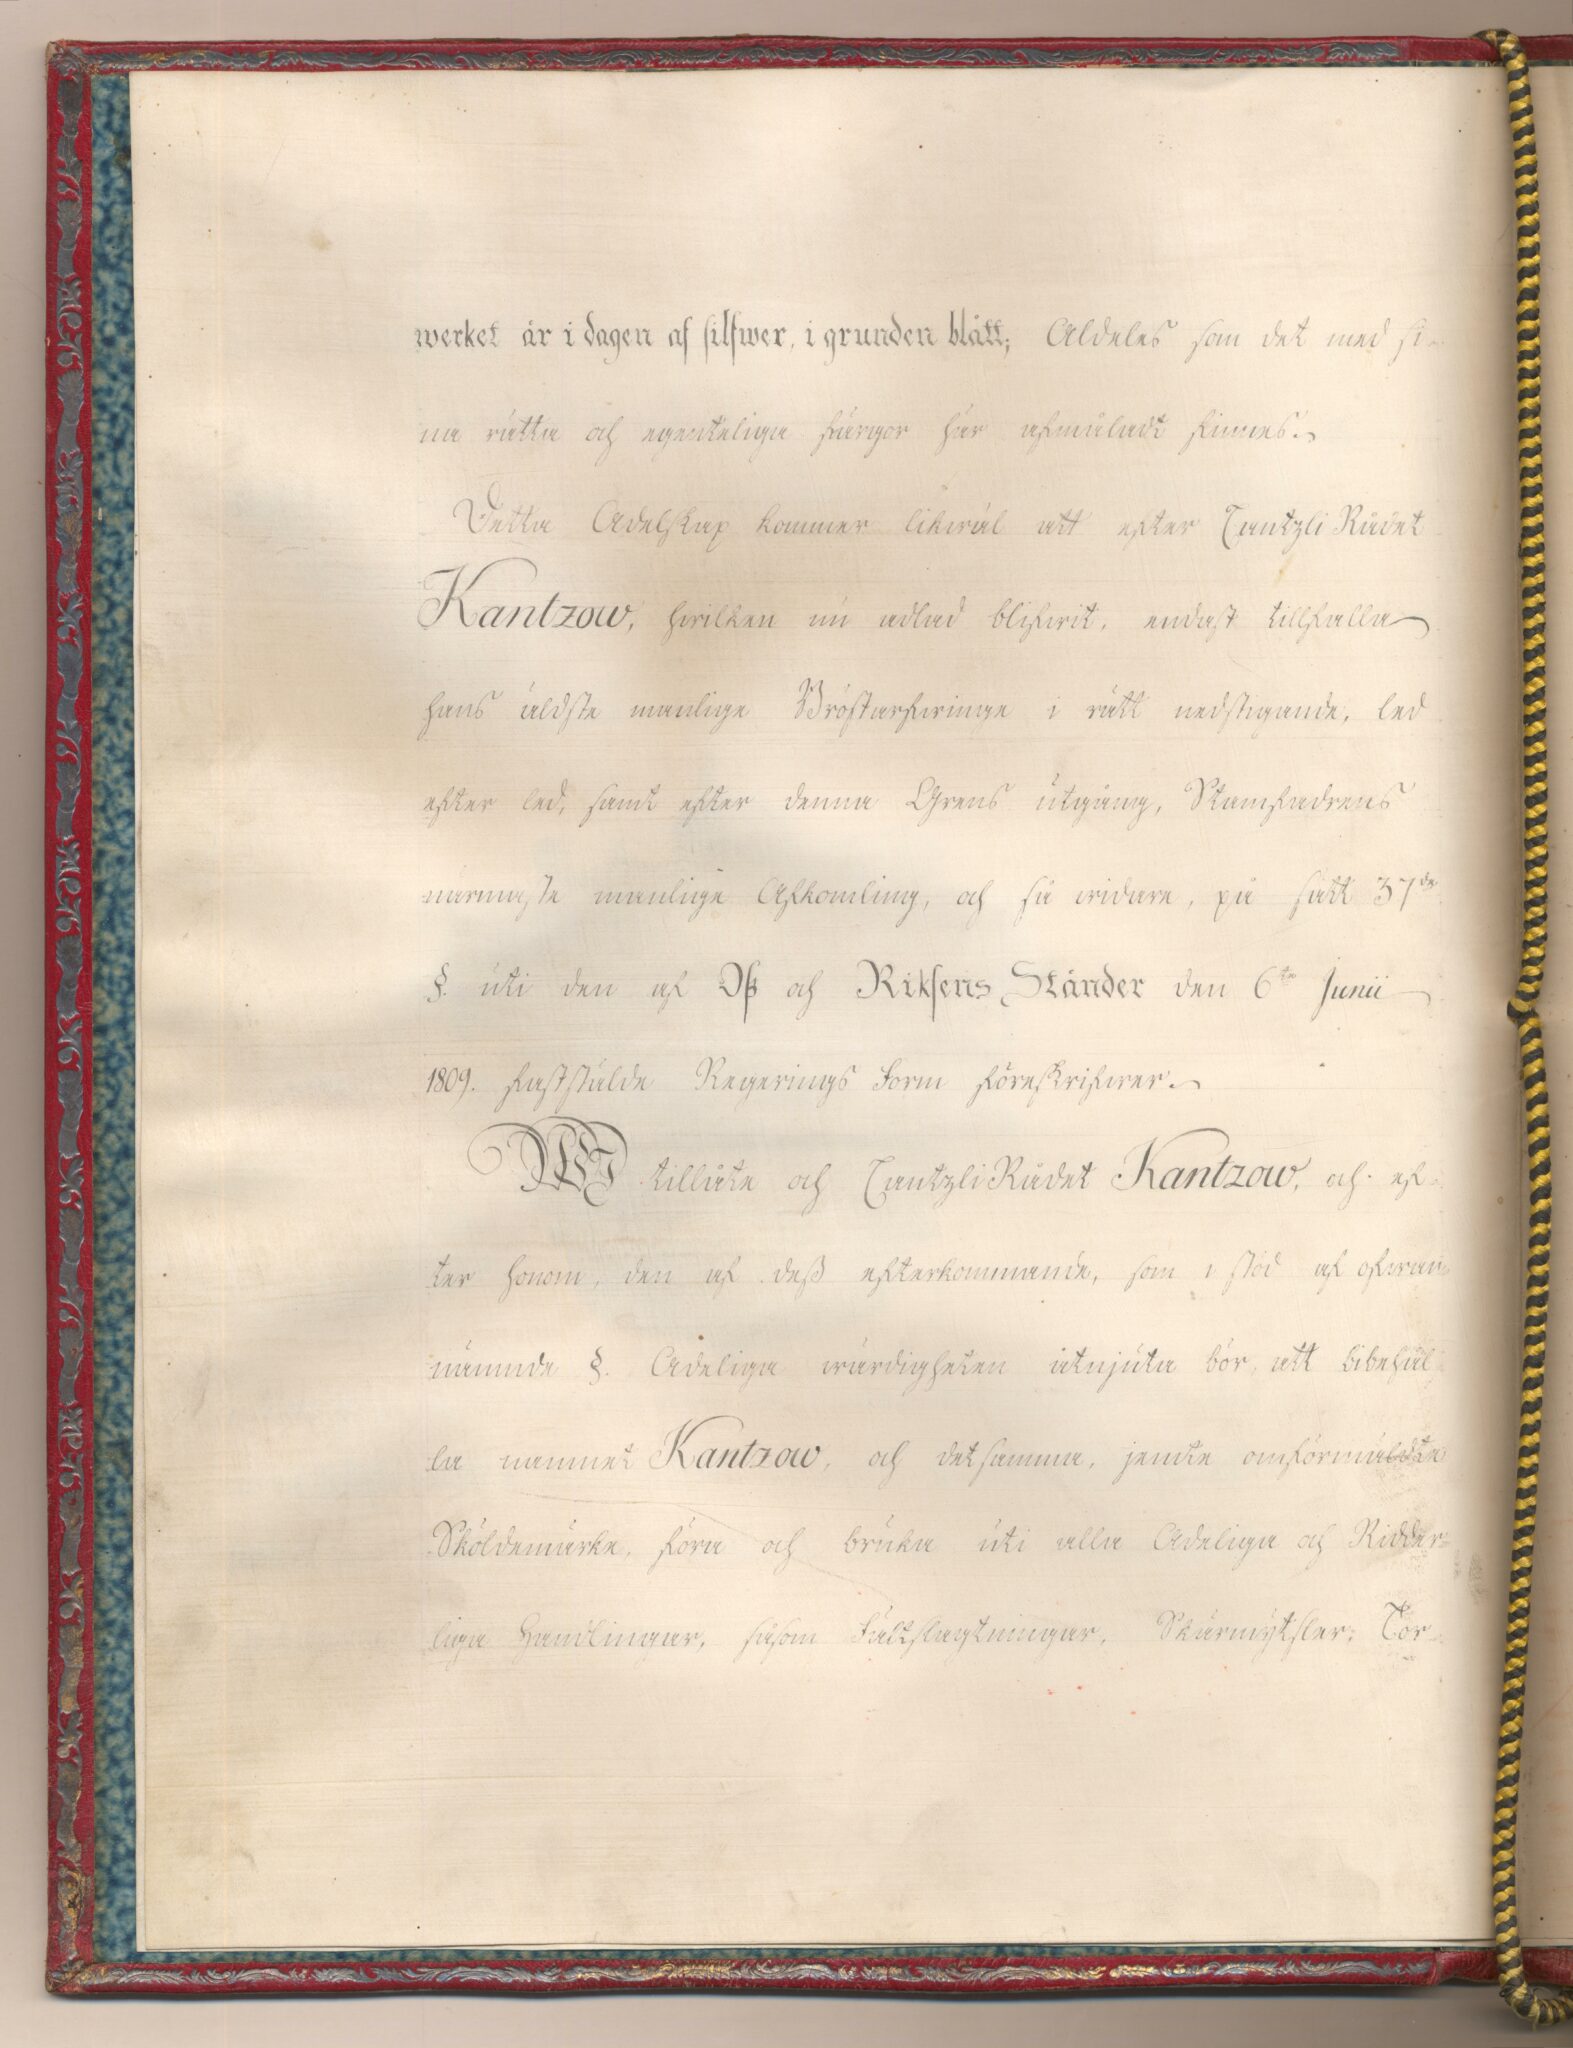 werket är i dagen af silfwer, i grunden blått; Aldeles som det med si-
na rätta och egenteliga färgor här afmåladt finnes.
Detta Adelskap kommer likwäl att efter Cantzli Rådet
Kantzow, hwilken nu adlad blifwit, endast tillfalla
hans äldste manlige Bröstarfwinge i rätt nedstigande, led
efter led, samt efter denna Grens utgång, Stamfadrens
närmaste manlige Afkomling, och så widare, på sätt 37de
§. uti den af Oß och Riksens Ständer den 6te Junii
1809. faststälde Regerings Form föreskrifwer.
WI tillåte och Cantzli Rådet Kantzow, och ef-
ter honom, den af deß efterkommande, som i stöd af ofwan-
nämnde §. Adeliga wärdigheten åtnjuta bör, att bibehål-
la namnet Kantzow, och detsamma, jemte omförmäldte
Sköldemärke, föra och bruka uti alla Adeliga och Ridder-
liga Handlingar, såsom Fältslagtningar, Skärmytsler, Tor-